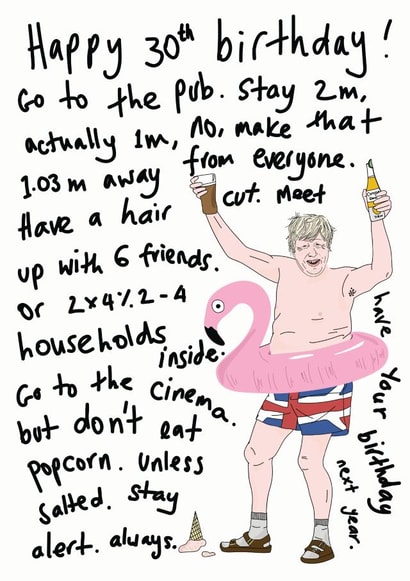 Happy 30th birthday!
Go to the pub. Stay 2m,
actually 1m, no, make that
1.03m away from everyone.
Have a hair cut. Meet
up with 6 friends.
or 2x4%2-4
households
inside.
Go to the Cinema.
but don't eat
popcorn. Unless
salted. Stay
alert. always.
have your birthday
next year.